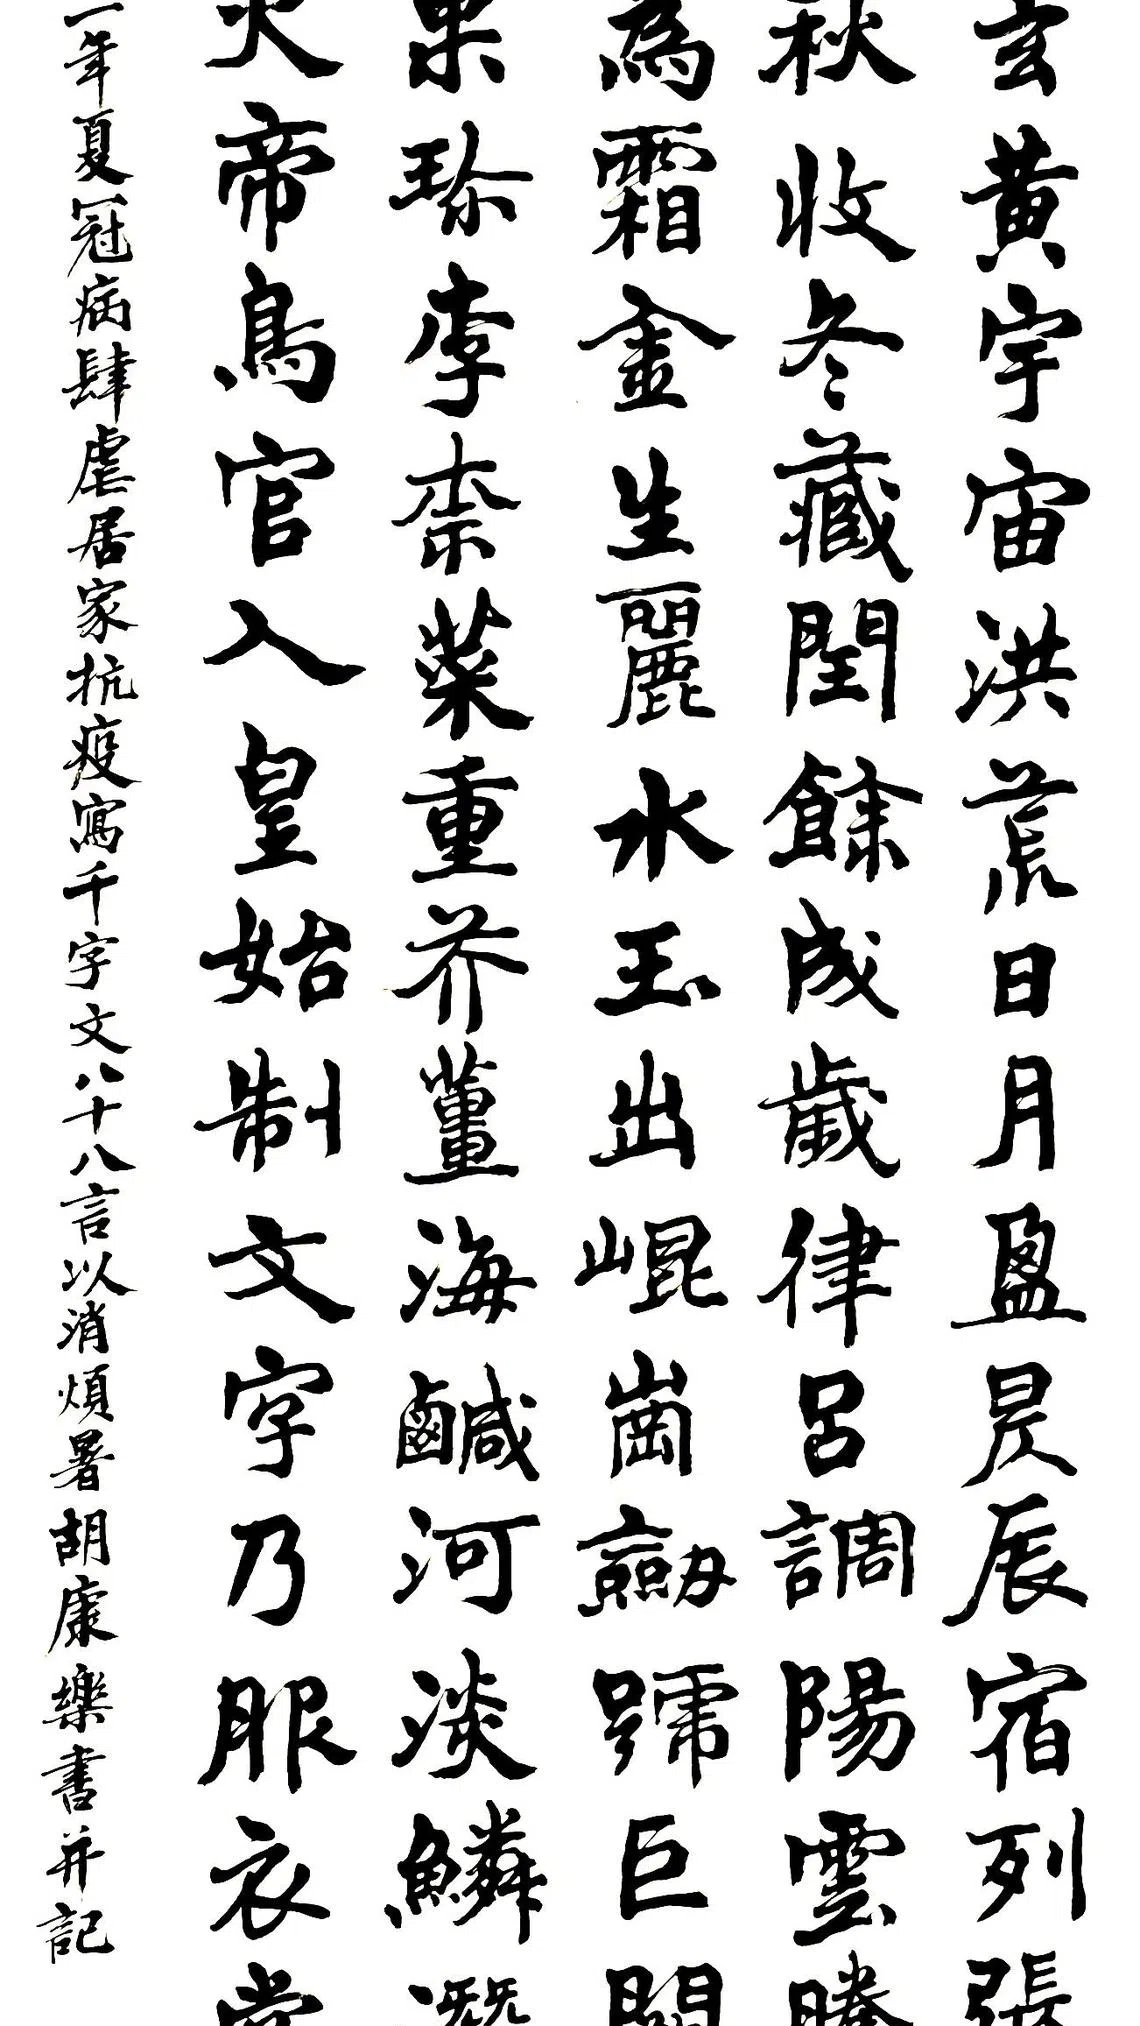 玄黃宇宙洪荒日月盈昃辰宿列張
秋收冬藏閏餘成歲律呂調陽雲騰
為霜金生麗水玉出崐崗劒號巨闕
果珍李柰菜重芥薑海鹹河淡鱗潛
火帝鳥官人皇始制文字乃服衣裳
年夏冠病肆虐居家抗疫寫千字文八十八言以消煩暑胡康樂書并記